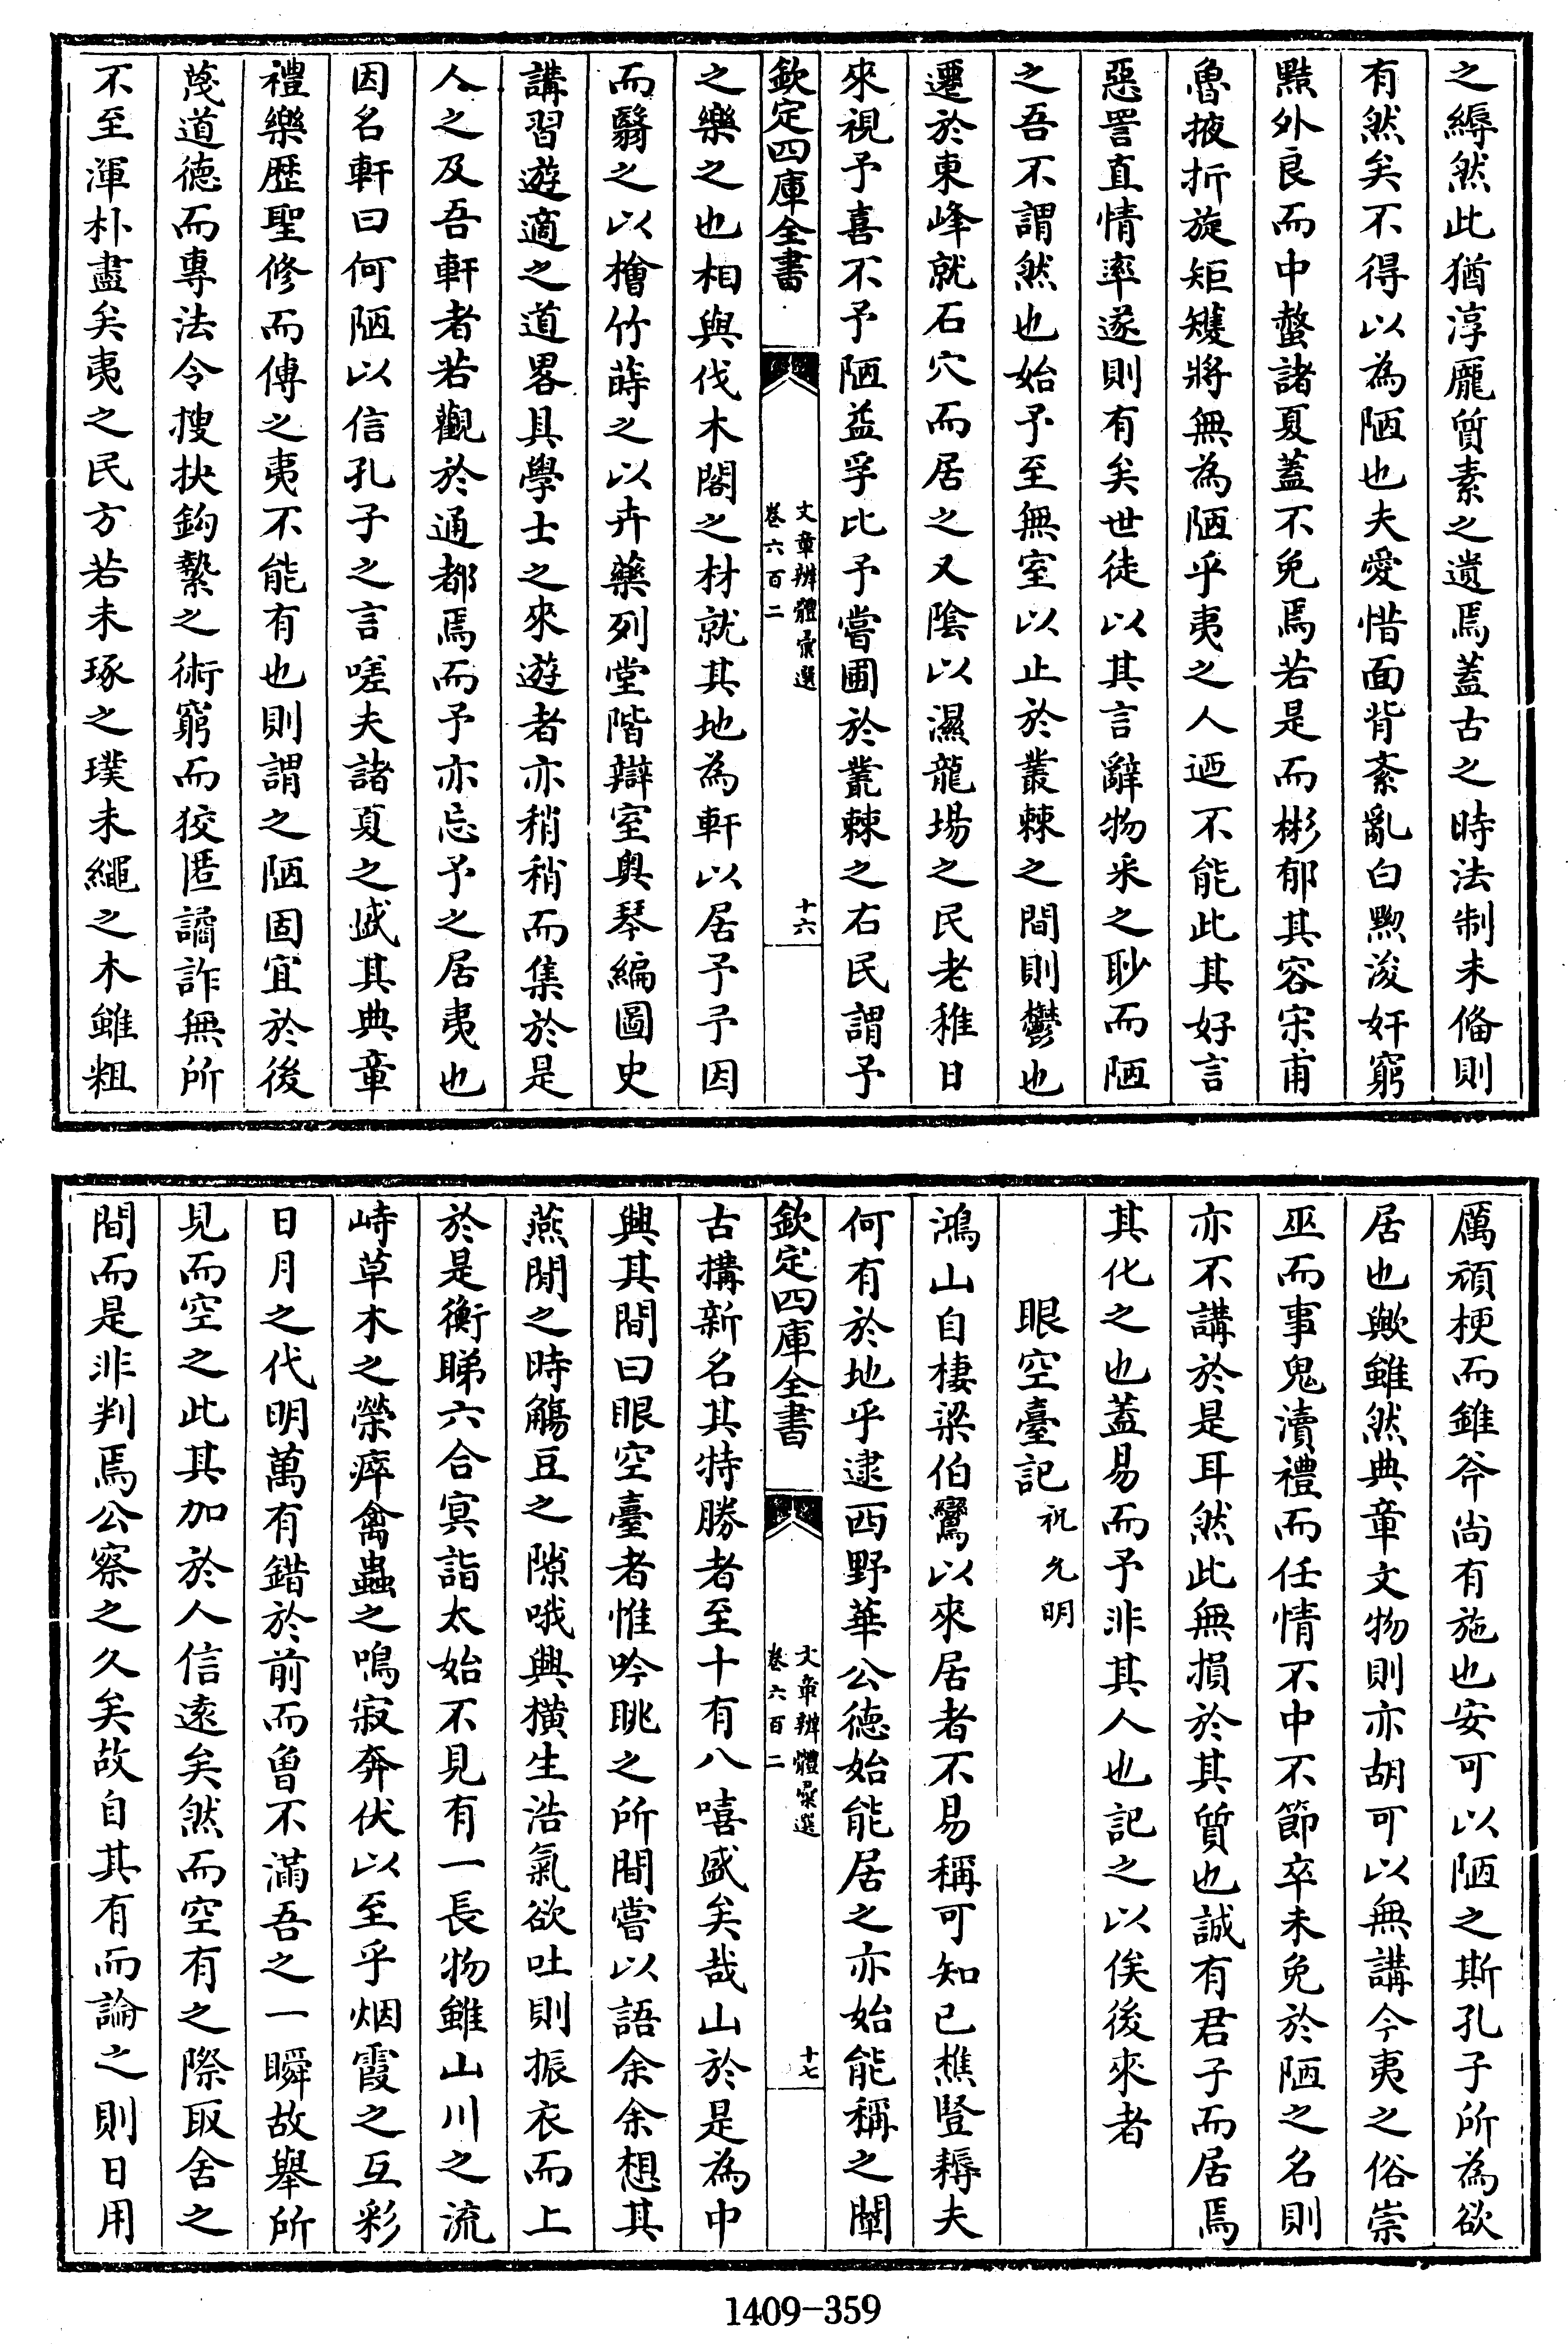 之縟然此猶淳龎質素之遺焉蓋古之時法制未備則
有然矣不得以為陋也夫愛憎面背紊亂白黝浚奸窮
黠外良而中螫諸夏蓋不免焉若是而彬郁其容宋甫
魯掖折旋矩矱將無為陋乎夷之人迺不能此其好言
惡詈直情率遂則有矣世徒以其言辭物采之眇而陋
之吾不謂然也始予至無室以止於叢棘之間則鬱也
遷於東峰就石穴而居之又陰以濕龍場之民老稚日
來視予喜不予陋益孚比予嘗圃於叢棘之右民謂予
欽定四庫全書
文章辨體彙選
卷六百二
十六
之樂之也相與伐木閣之材就其地為軒以居予予因
而翳之以檜竹蒔之以卉藥列堂階辯室奥琴編圖史
講習遊適之道畧具學士之來遊者亦稍稍而集於是
人之及吾軒者若觀於通都焉而予亦忘予之居夷也
因名軒曰何陋以信孔子之言嗟夫諸夏之盛其典章
禮樂歴聖修而傳之夷不能有也則謂之陋固宜於後
蔑道德而專法令搜抉鈎縶之術窮而狡匿譎詐無所
不至渾朴盡矣夷之民方若未琢之璞未繩之木雖粗
厲頑梗而錐斧尚有施也安可以陋之斯孔子所為欲
居也歟雖然典章文物則亦胡可以無講今夷之俗崇
巫而事鬼瀆禮而任情不中不節卒未免於陋之名則
亦不講於是耳然此無損於其質也誠有君子而居焉
其化之也蓋易而予非其人也記之以俟後來者
眼空臺記祝允明
鴻山自棲梁伯鸞以來居者不易稱可知已樵豎耨夫
何有於地乎逮西野華公德始能居之亦始能稱之闡
欽定四庫全書
文章辨體彙選
卷六百二
十七
古搆新名其特勝者至十有八嘻盛矣哉山於是為中
興其間曰眼空臺者惟吟眺之所間嘗以語余余想其
燕閒之時觴豆之隙哦興橫生浩氣欲吐則振衣而上
於是衡睇六合冥詣太始不見有一長物雖山川之流
峙草木之榮瘁禽蟲之鳴寂奔伏以至乎烟霞之互彩
日月之代明萬有錯於前而曽不滿吾之一瞬故舉所
見而空之此其加於人信遠矣然而空有之際取舍之
間而是非判焉公察之久矣故自其有而論之則日用
1409-359